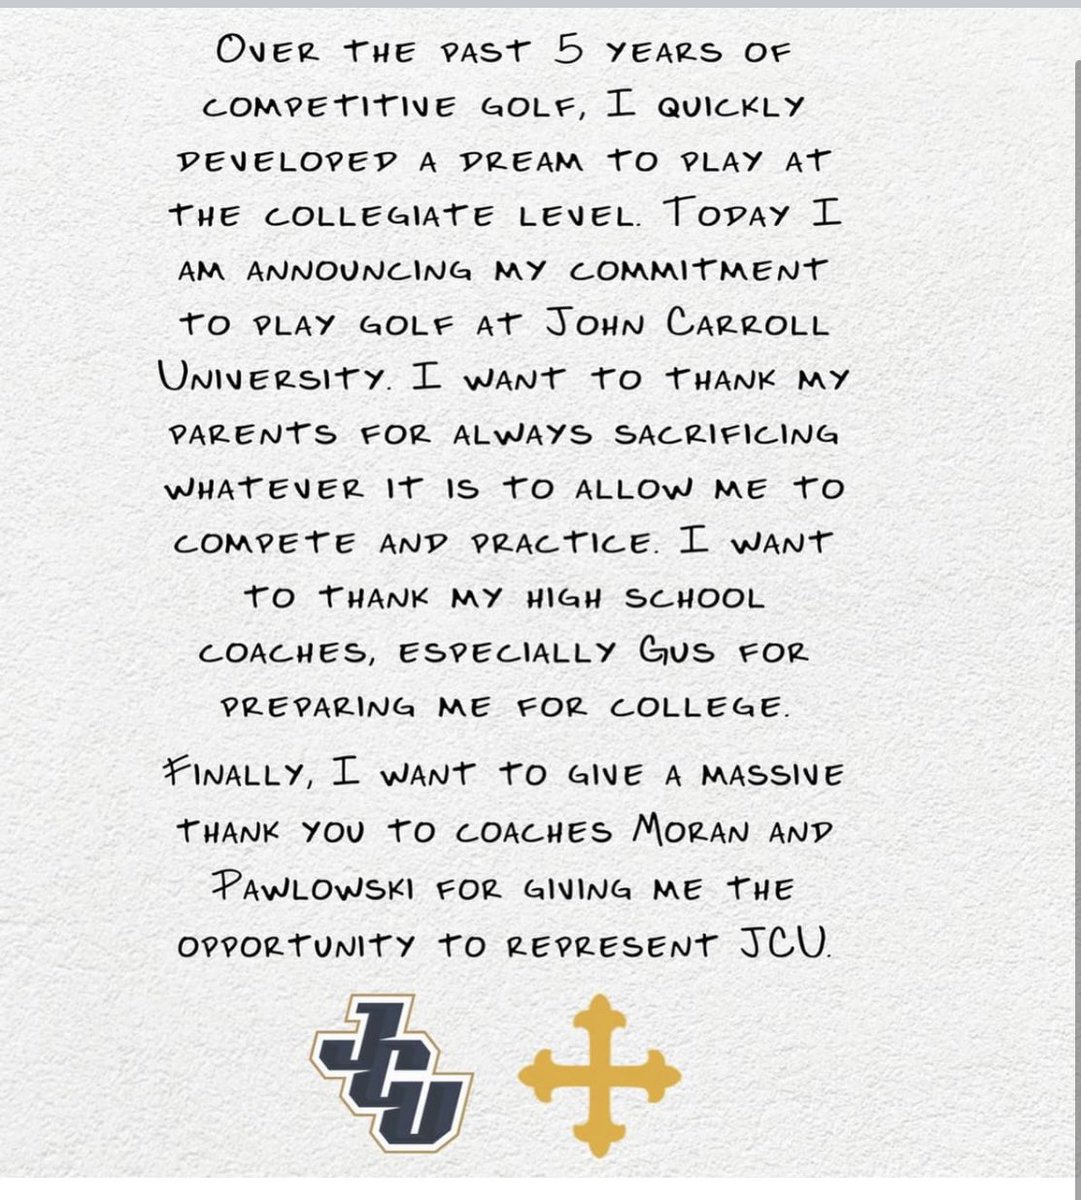 Over the past 5 years of
competitive golf, I quickly
developed a dream to play at
the collegiate level. Today I
am announcing my commitment
to play golf at John Carroll
University. I want to thank my
parents for always sacrificing
whatever it is to allow me to
compete and practice. I want
to thank my high school
coaches, especially Gus for
preparing me for college.
Finally, I want to give a massive
thank you to coaches Moran and
Pawlowski for giving me the
opportunity to represent JCU.
JCU